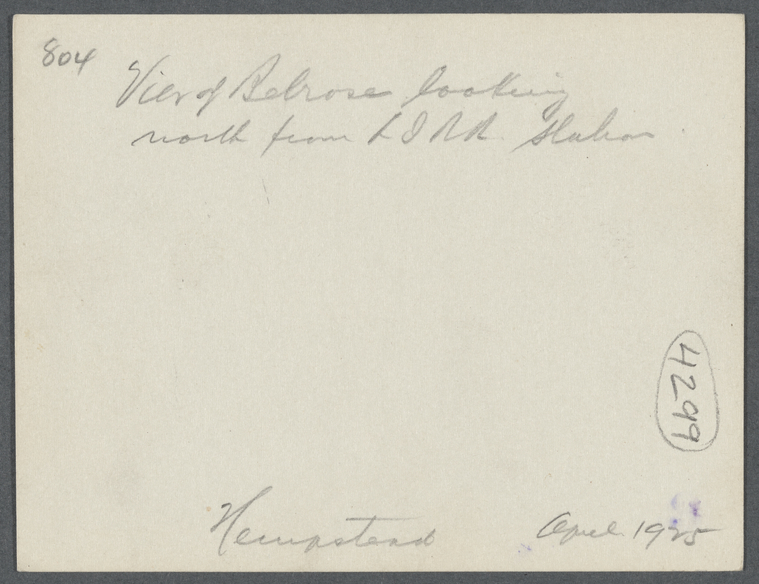 804
View of Belrose looking
north from L I R R Station
4299
Hempstead
April 1925